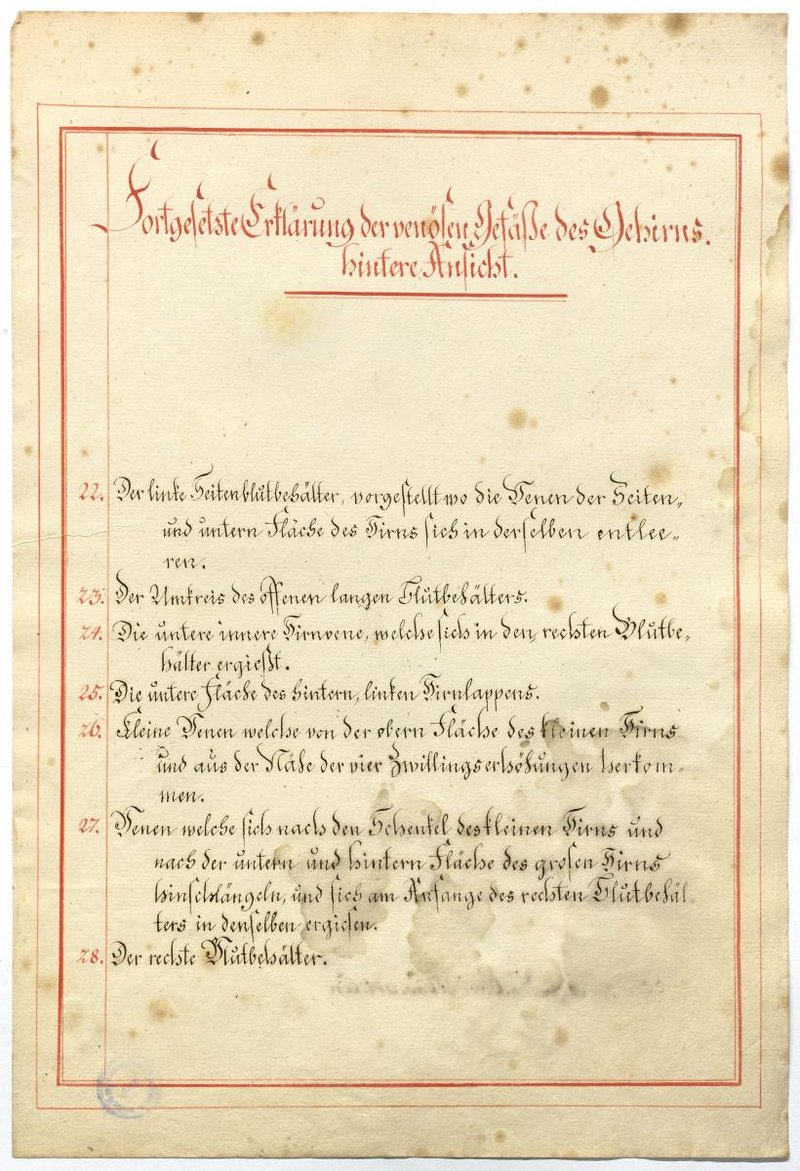 Fortgesetste Erklärung der venösen Gefäße des Gehirns.
hintere Ansicht.
22. Der linke Seitenblutbehälter, vorgestellt wo die Venen der Seiten„
und untern Fläche des Hirns sich in derselben entlee„
ren.
23. Der Umkreis des offenen langen Blutbehälters.
24. Die untere innere Hirnvene, welche sich in den rechten Blutbe„
hälter ergießt.
25. Die untere Fläche des hintern, linken Hirnlappens.
26. Kleine Venen welche von der obern Fläche des kleinen Hirns
und aus der Nähe der vier Zwillingserhöhungen herkom„
men.
27. Venen welche sich nach den Schenkel des kleinen Hirns und
nach der untern und hintern Fläche des grosen Hirns
hinschlängeln, und sich am Anfange des rechten Blutbehäl„
ters in denselben ergiesen.
28. Der rechte Blutbehälter.